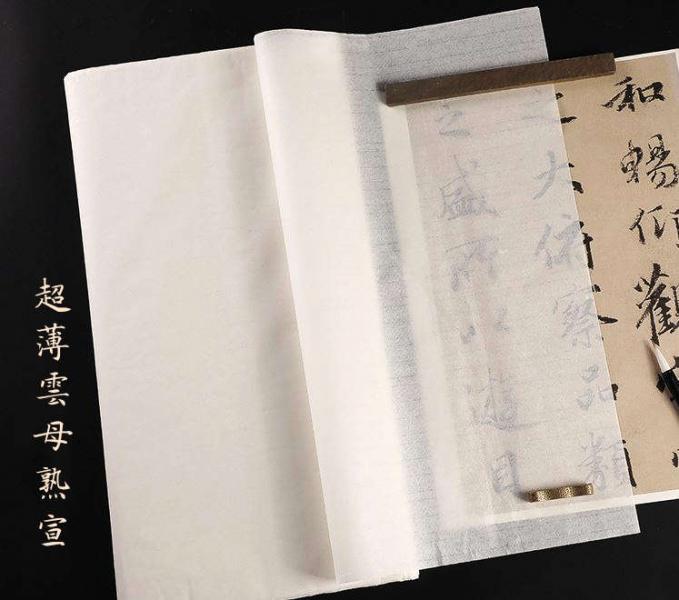 和暢仰觀宇
之大俯察品類
之盛所以遊目
超薄雲母熟宣